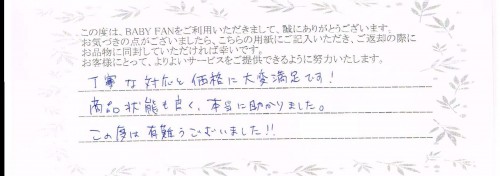 この度は、BABY FANをご利用いただきまして、誠にありがとうございます。
お気づきの点がございましたら、こちらの用紙にご記入いただき、ご返却の際に
お品物に同封していただければ幸いです。
お客様にとって、よりよいサービスをご提供できるように努力いたします。
丁寧な対応と価格に大変満足です!
商品状態も良く、本当に助かりました。
この度は有難うございました!!